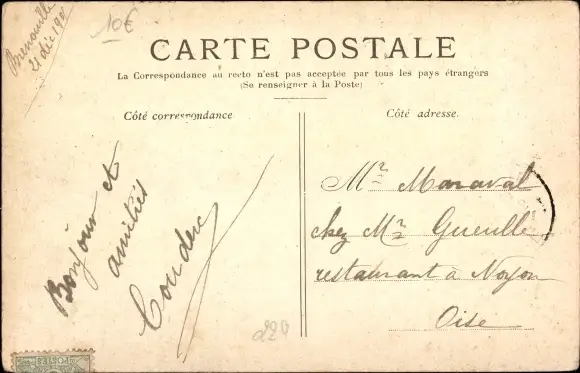 Brenouille
21 déc 190
10€
CARTE POSTALE
La Correspondance au recto n'est pas acceptée par tous les pays étrangers
(Se renseigner à la Poste)
Côté correspondance
Bonjour et
amitiés
Couderc
Côté adresse.
Mr Maraval
chez Mr Gueulle
restaurant à Noyon
Oise
POSTES